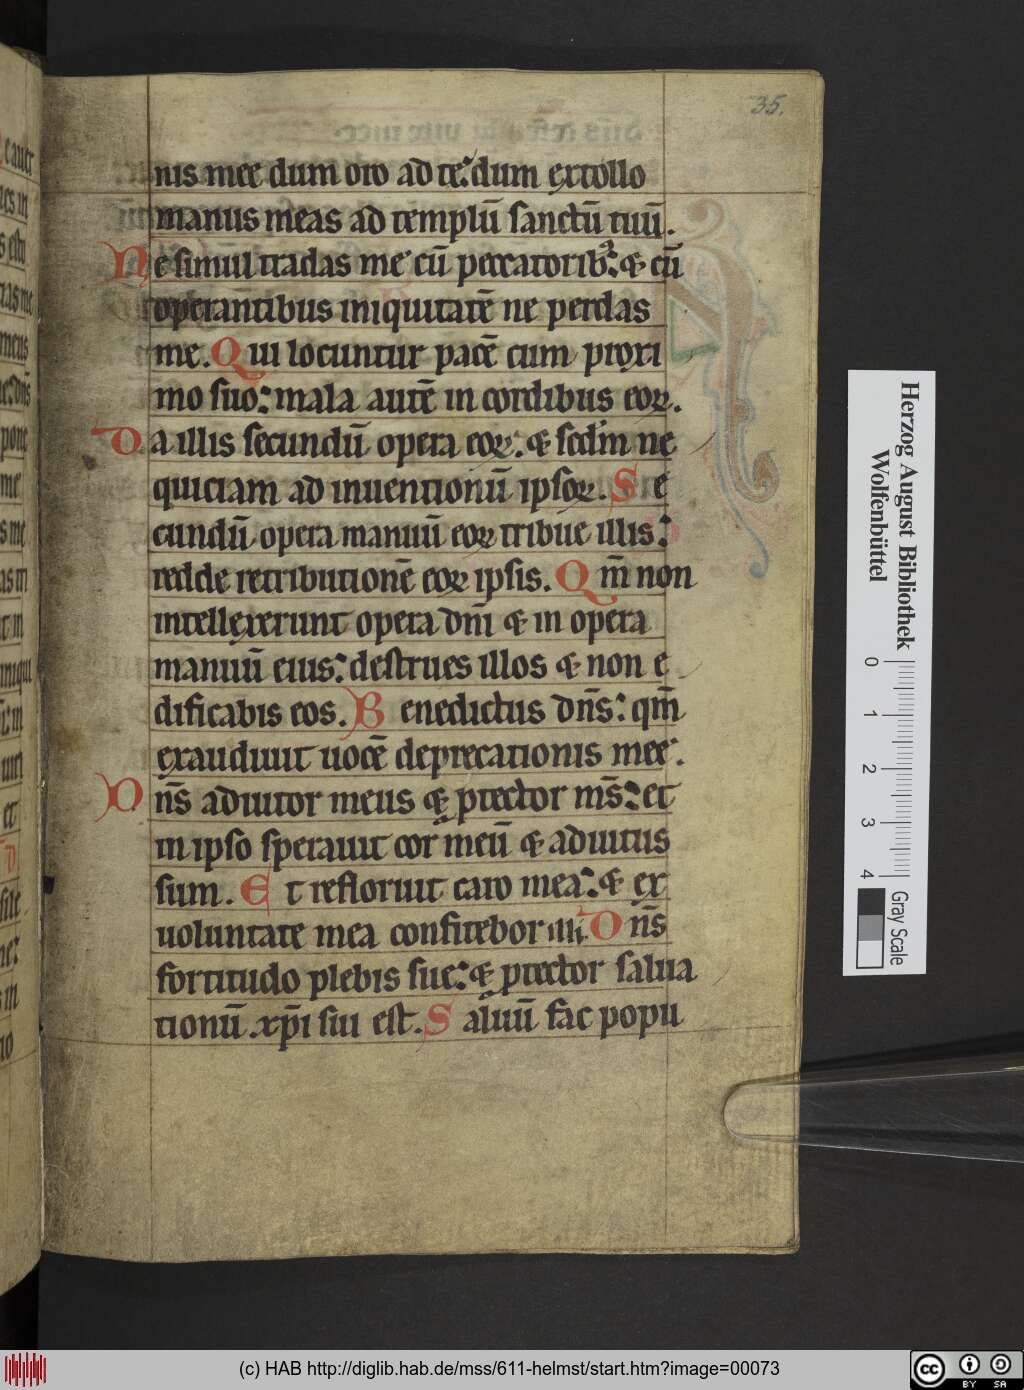 35.
nis mee dum oro ad te: dum extollo
manus meas ad templū sanctū tuū.
Ne simul tradas me cū peccatorib;: & cū
operantibus iniquitatē ne perdas
me. Qui locuntur pacē cum proxi
mo suo: mala autē in cordibus eoꝝ.
Da illis secundū opera eoꝝ: & scdm̄ ne
quiciam ad inuentionū ipsoꝝ. Se
cundū opera manuū eoꝝ tribue illis:
redde retributionē eoꝝ ipsis. Qm̄ non
intellexerunt opera dn̄i & in opera
manuū eius: destrues illos & non e
dificabis eos. Benedictus dn̄s: qm̄
exaudiuit uocē deprecationis mee.
Dn̄s adiutor meus & ꝓtector ms̄: et
in ipso sperauit cor meū & adiutus
sum. Et refloruit caro mea: & ex
uoluntate mea confitebor illi. Dn̄s
fortitudo plebis sue: & ꝓtector salua
tionū xp̄i sui est. Saluū fac popu
Herzog August Bibliothek
Wolfenbüttel
0 1 2 3 4
Gray Scale
(c) HAB http://diglib.hab.de/mss/611-helmst/start.htm?image=00073
cc BY SA